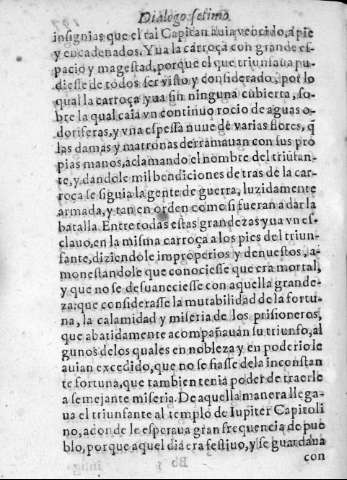 Dialogo setimo.
insignias que el tal Capitan auia vencido, a pie
y encadenados. Yua la carroça con grande es-
pacio y magestad, porque el que triunfaua pu-
diesse de todos ser visto y considerado, por lo
qual la carroça yua sin ninguna cubierta, so-
bre la qual caia vn continuo rocio de aguas o-
doriferas, y vna espessa nuue de varias flores, q̃
las damas y matronas derramauan con sus pro
pias manos, aclamando el nombre del triũfan-
te, y dandole mil bendiciones de tras de la car-
roça se siguia la gente de guerra, luzidamente
armada, y tan en orden como si fueran a dar la
batalla. Entre todas estas grandezas yua vn es-
clauo, en la misma carroça a los pies del triun-
fante, diziendole improperios y denuestos, a-
monestandole que conociesse que era mortal,
y que no se desuaneciesse con aquella grande-
za: que considerasse la mutabilidad de la fortu-
na, la calamidad y miseria de los prisioneros,
que abatidamente acompañauan su triunfo, al
gunos de los quales en nobleza y en poderio le
auian excedido, que no se fiasse de la inconstan
te fortuna, que tambien tenia poder de traerle
a semejante miseria. De aquella manera llega-
ua el triunfante al templo de Iupiter Capitoli
no, adonde le esperaua gran frequencia de pue
blo, porque aquel dia era festiuo, y se guardaua
con